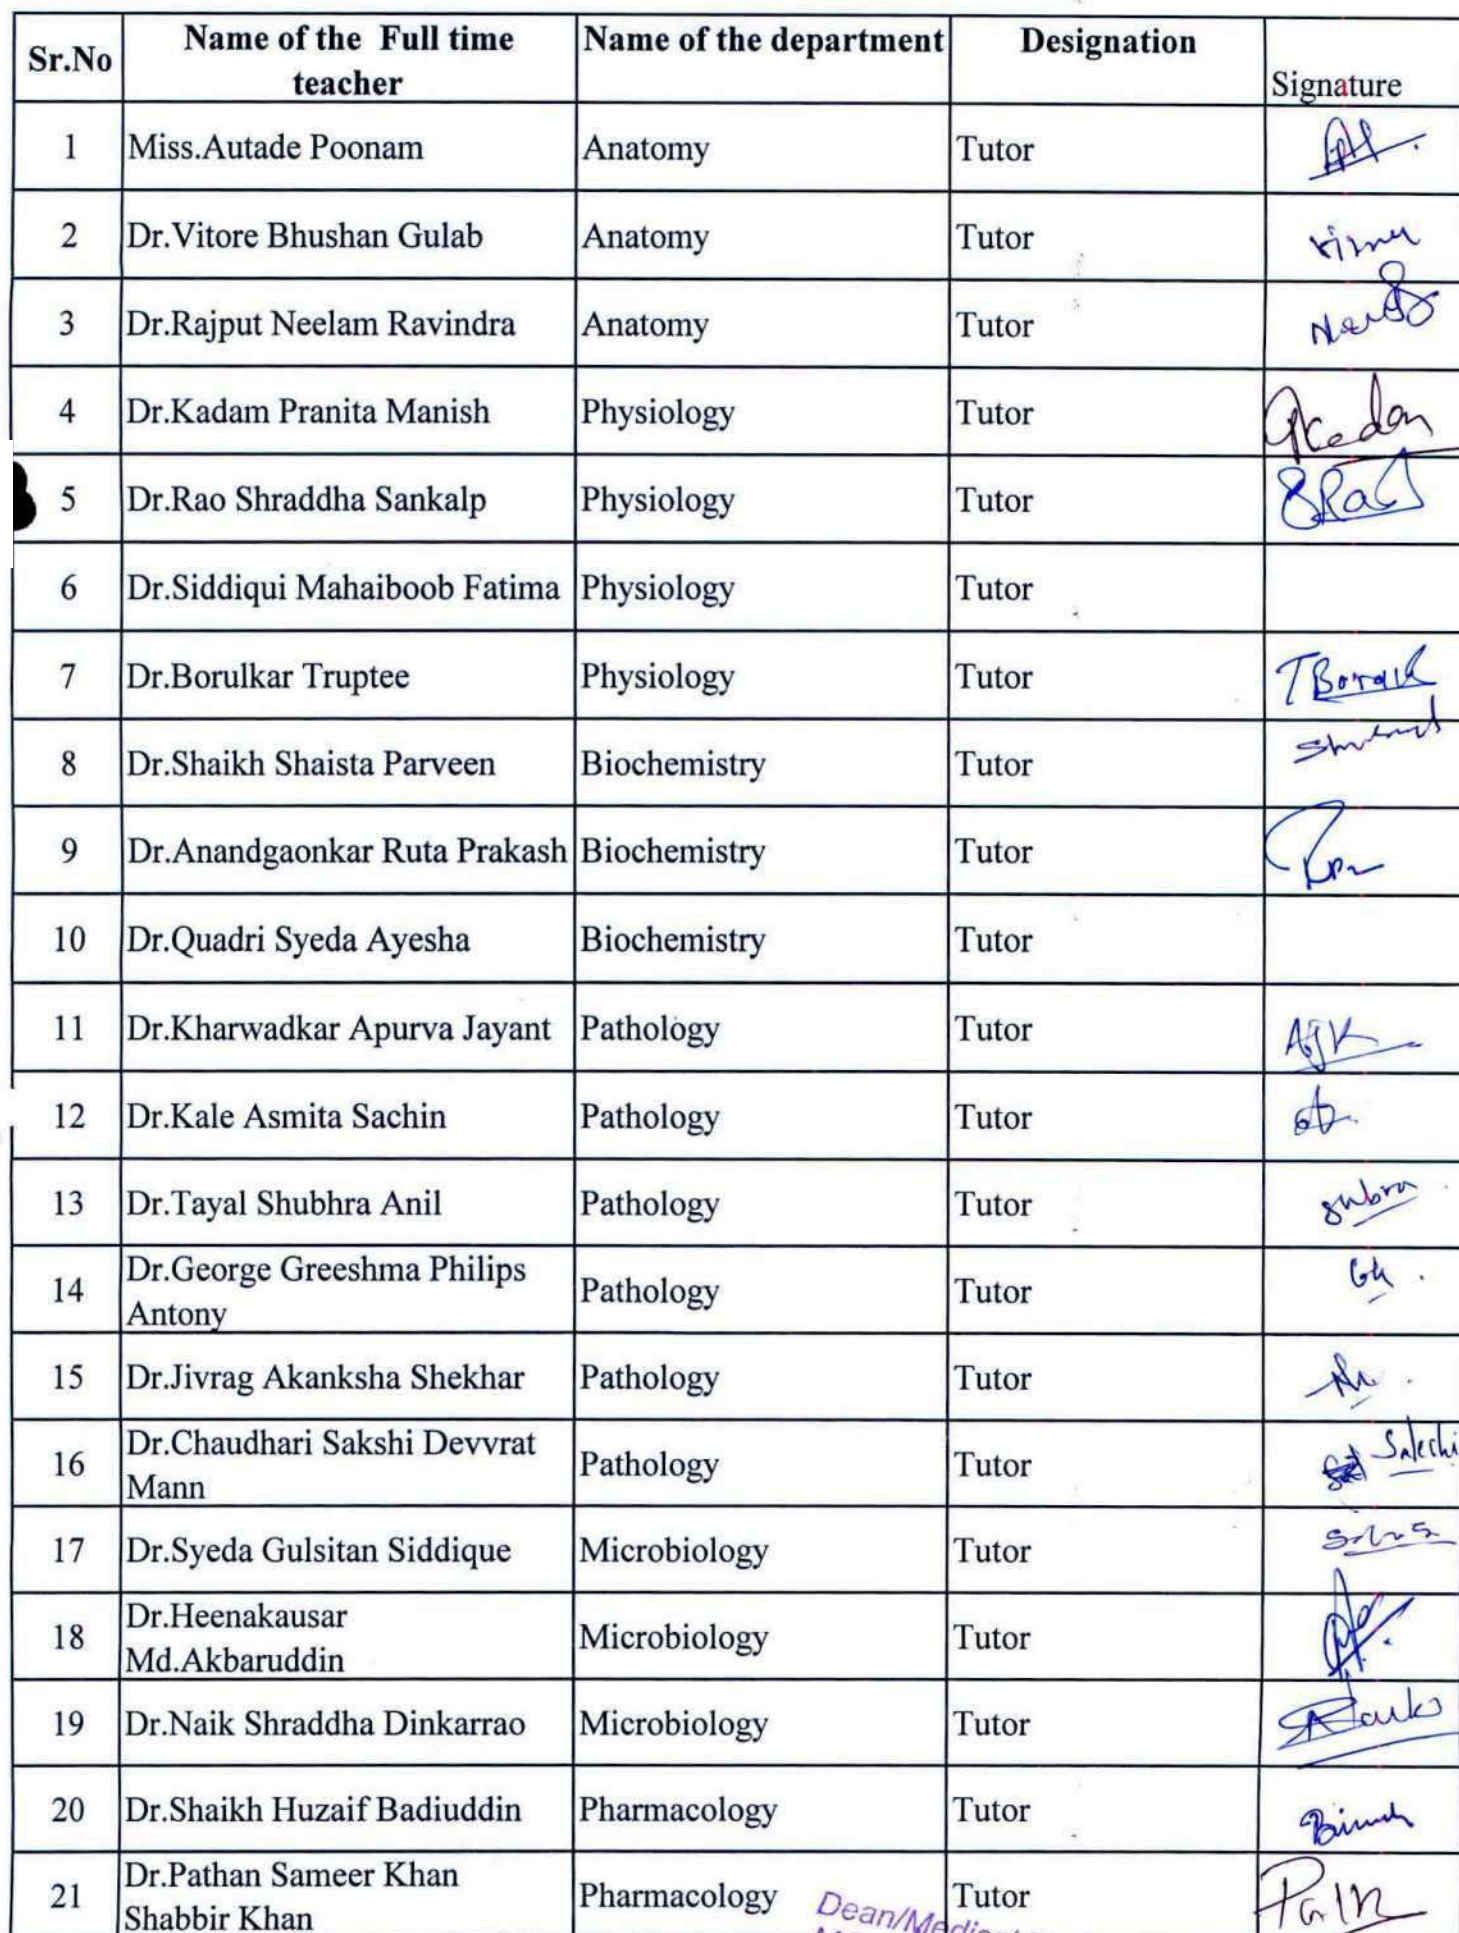 Sr.No Name of the Full time teacher Name of the department Designation Signature
1 Miss.Autade Poonam Anatomy Tutor
2 Dr.Vitore Bhushan Gulab Anatomy Tutor
3 Dr.Rajput Neelam Ravindra Anatomy Tutor
4 Dr.Kadam Pranita Manish Physiology Tutor
5 Dr.Rao Shraddha Sankalp Physiology Tutor SRao
6 Dr.Siddiqui Mahaiboob Fatima Physiology Tutor
7 Dr.Borulkar Truptee Physiology Tutor
8 Dr.Shaikh Shaista Parveen Biochemistry Tutor
9 Dr.Anandgaonkar Ruta Prakash Biochemistry Tutor
10 Dr.Quadri Syeda Ayesha Biochemistry Tutor
11 Dr.Kharwadkar Apurva Jayant Pathology Tutor AJK
12 Dr.Kale Asmita Sachin Pathology Tutor
13 Dr.Tayal Shubhra Anil Pathology Tutor
14 Dr.George Greeshma Philips
Antony Pathology Tutor
15 Dr.Jivrag Akanksha Shekhar Pathology Tutor
16 Dr.Chaudhari Sakshi Devvrat
Mann Pathology Tutor Sakshi
17 Dr.Syeda Gulsitan Siddique Microbiology Tutor
18 Dr.Heenakausar
Md.Akbaruddin Microbiology Tutor
19 Dr.Naik Shraddha Dinkarrao Microbiology Tutor
20 Dr.Shaikh Huzaif Badiuddin Pharmacology Tutor
21 Dr.Pathan Sameer Khan
Shabbir Khan Pharmacology Tutor
Dean/Medical